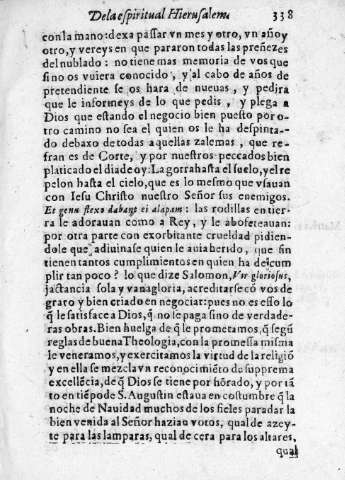 Dela espiritual Hierusalem. 338
con la mano: dexa passar vn mes y otro, vn año y
otro, y vereys en que pararon todas las preñezes
del nublado: no tiene mas memoria de vos que
sino os vuiera conocido, y al cabo de años de
pretendiente se os hara de nueuas, y pedira
que le informeys de lo que pedis, y plega a
Dios que estando el negocio bien puesto por o-
tro camino no sea el quien os le ha despinta-
do debaxo de todas aquellas zalemas, que re-
fran es de Corte, y por nuestros peccados bien
platicado el dia de oy: La gorra hasta el suelo, y el re
pelon hasta el cielo, que es lo mesmo que vsauan
con Iesu Christo nuestro Señor sus enemigos.
Et genu flexo dabant ei alapam: las rodillas en tier-
ra le adorauan como a Rey, y le abofeteauan:
por otra parte con exorbitante crueldad pidien-
dole que adiuinase quien le auia herido, que sin
tienen tantos cumplimientos en quien ha de cum
plir tan poco? lo que dize Salomon, Vir gloriosus,
jactancia sola y vanagloria, acreditarse cō vos de
grato y bien criado en negociar: pues no es esso lo
q̄ le satisface a Dios, q̄ no le paga sino de verdade-
ras obras. Bien huelga de q̄ le prometamos, q̄ segū
reglas de buena Theologia, con la promessa misma
le veneramos, y exercitamos la virtud de la religiō
y en ella se mezcla vn reconocimiēto de suprema
excellēcia, de q̄ Dios se tiene por hōrado, y por tā
to en tiēpo de S. Augustin estaua en costumbre q̄ la
noche de Nauidad muchos de los fieles para dar la
bien venida al Señor haziau votos, qual de azey-
te para las lamparas, qual de cera para los altares,
qual